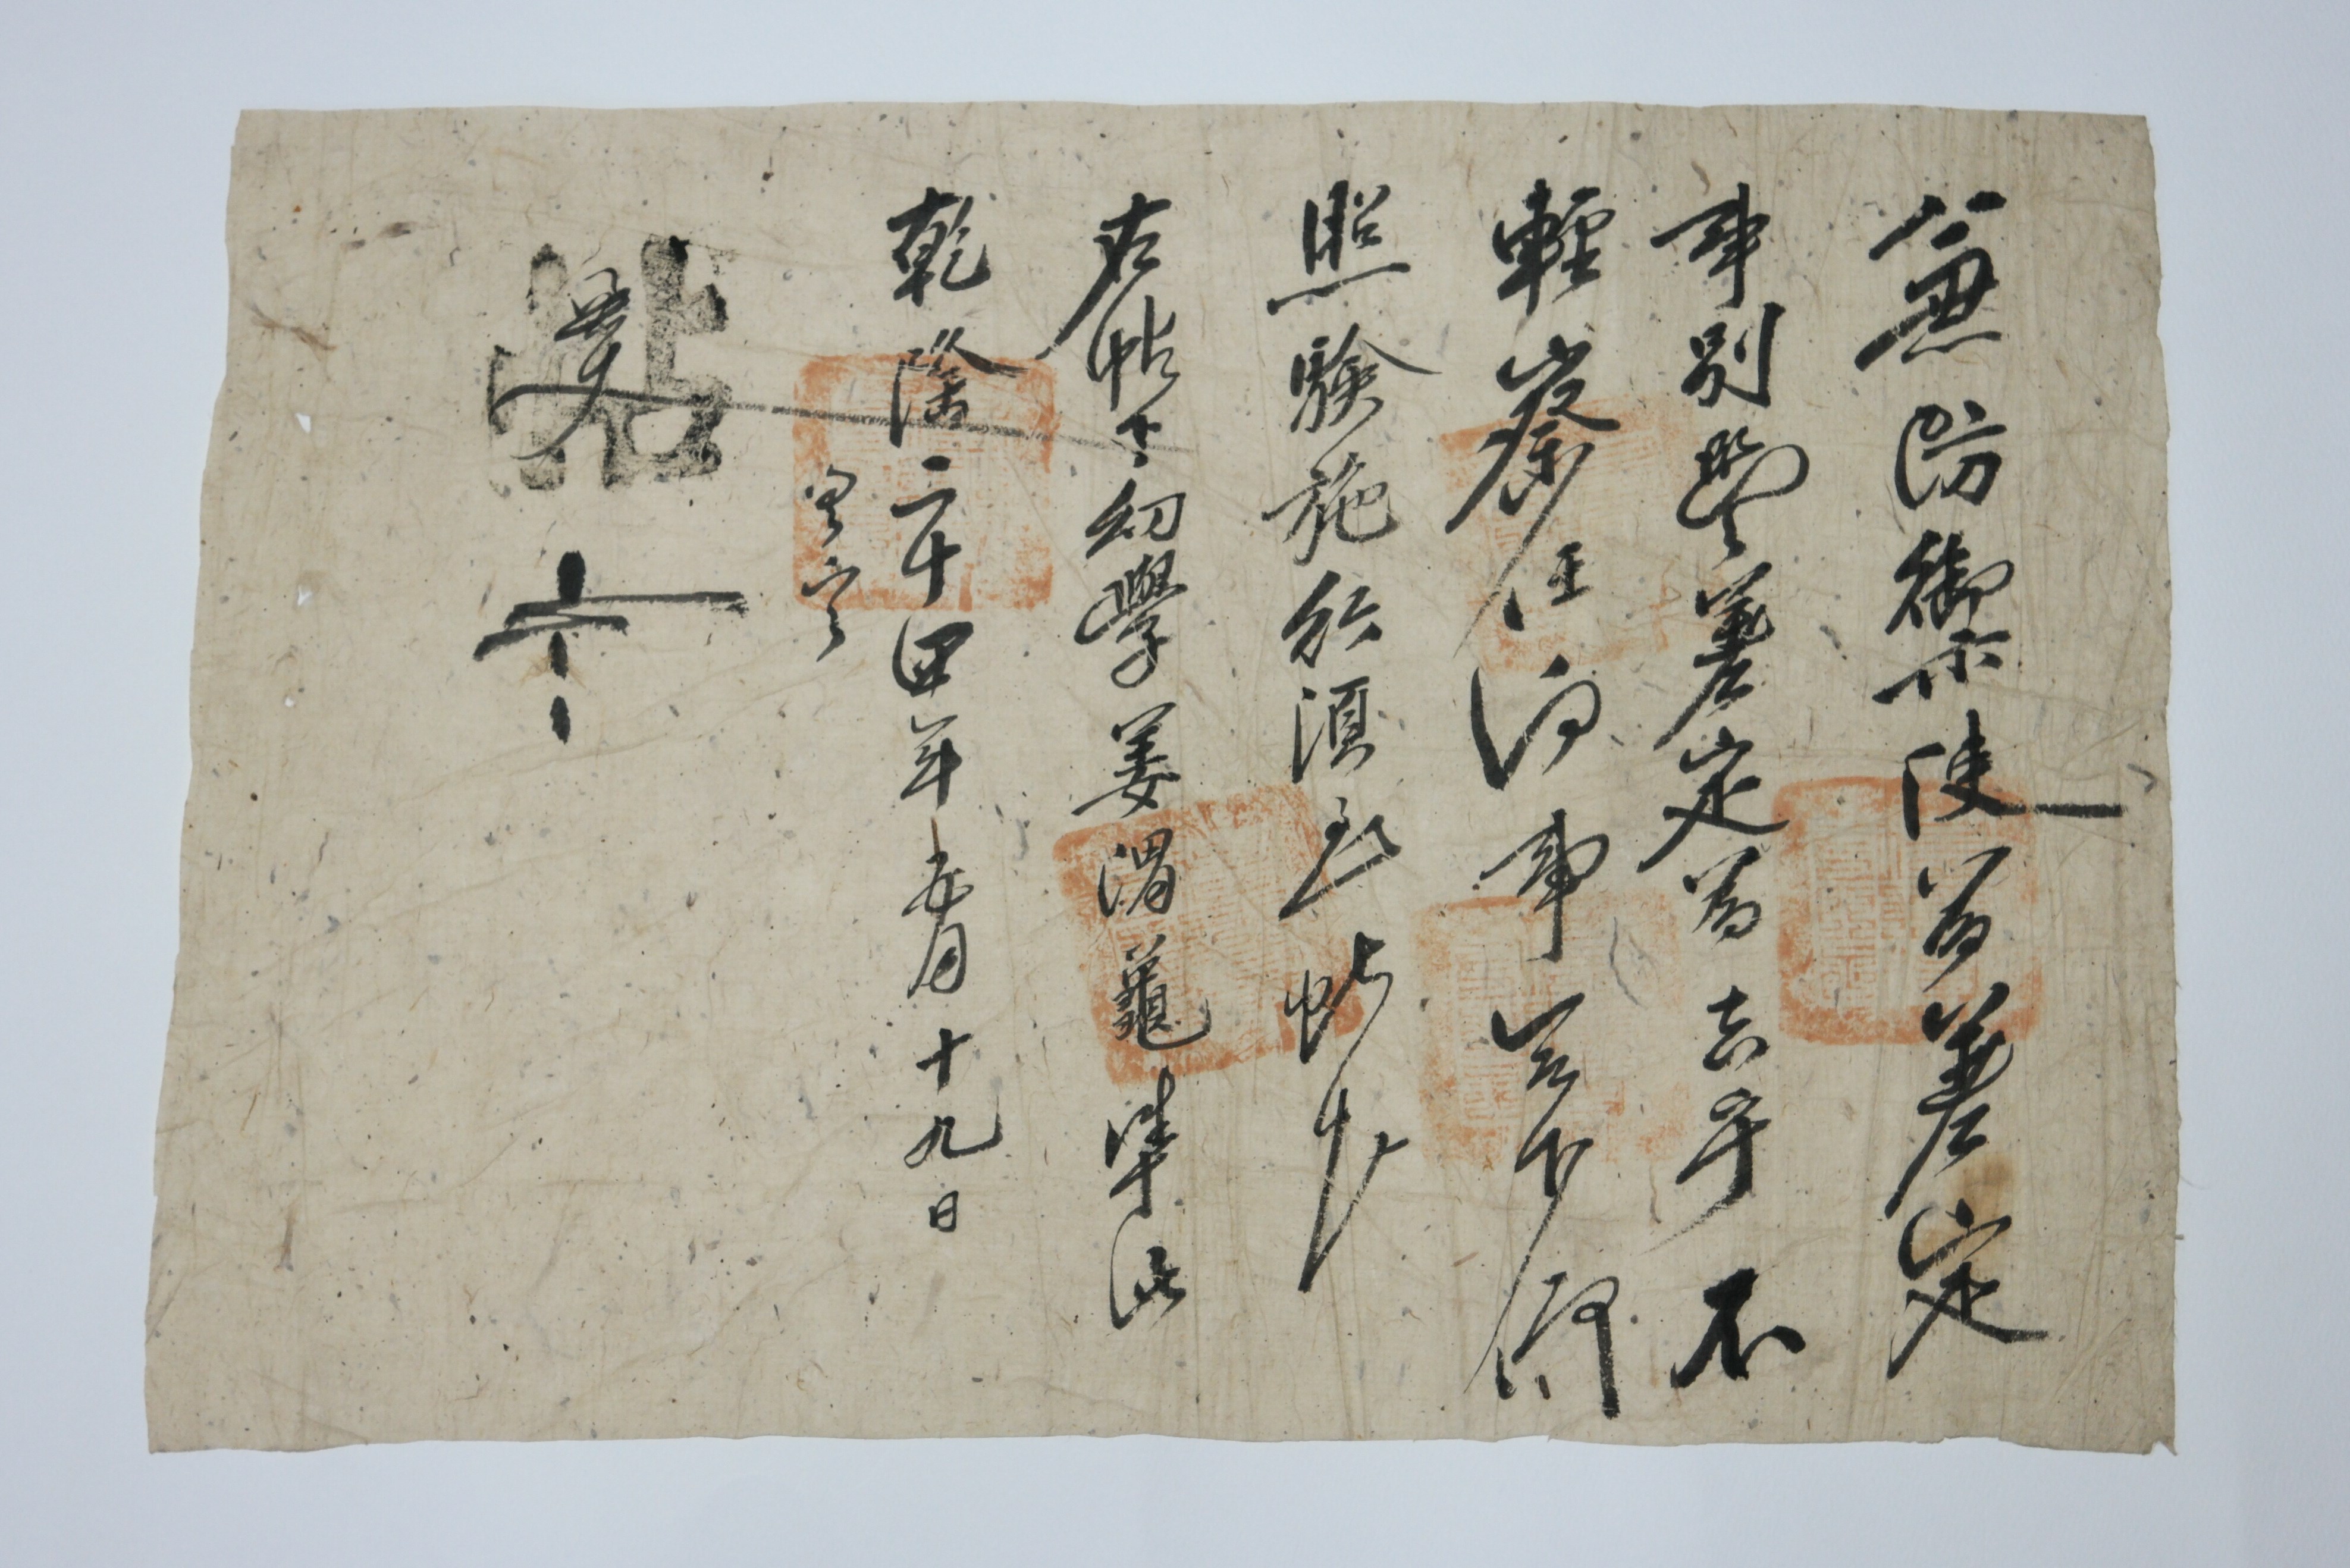 兼防禦使爲差定
事別監差定爲去乎不
輕察任向事合下仰
照驗施行須至帖者
右帖下幼學姜渭龜準此
乾隆二十四年五月十九日
帖